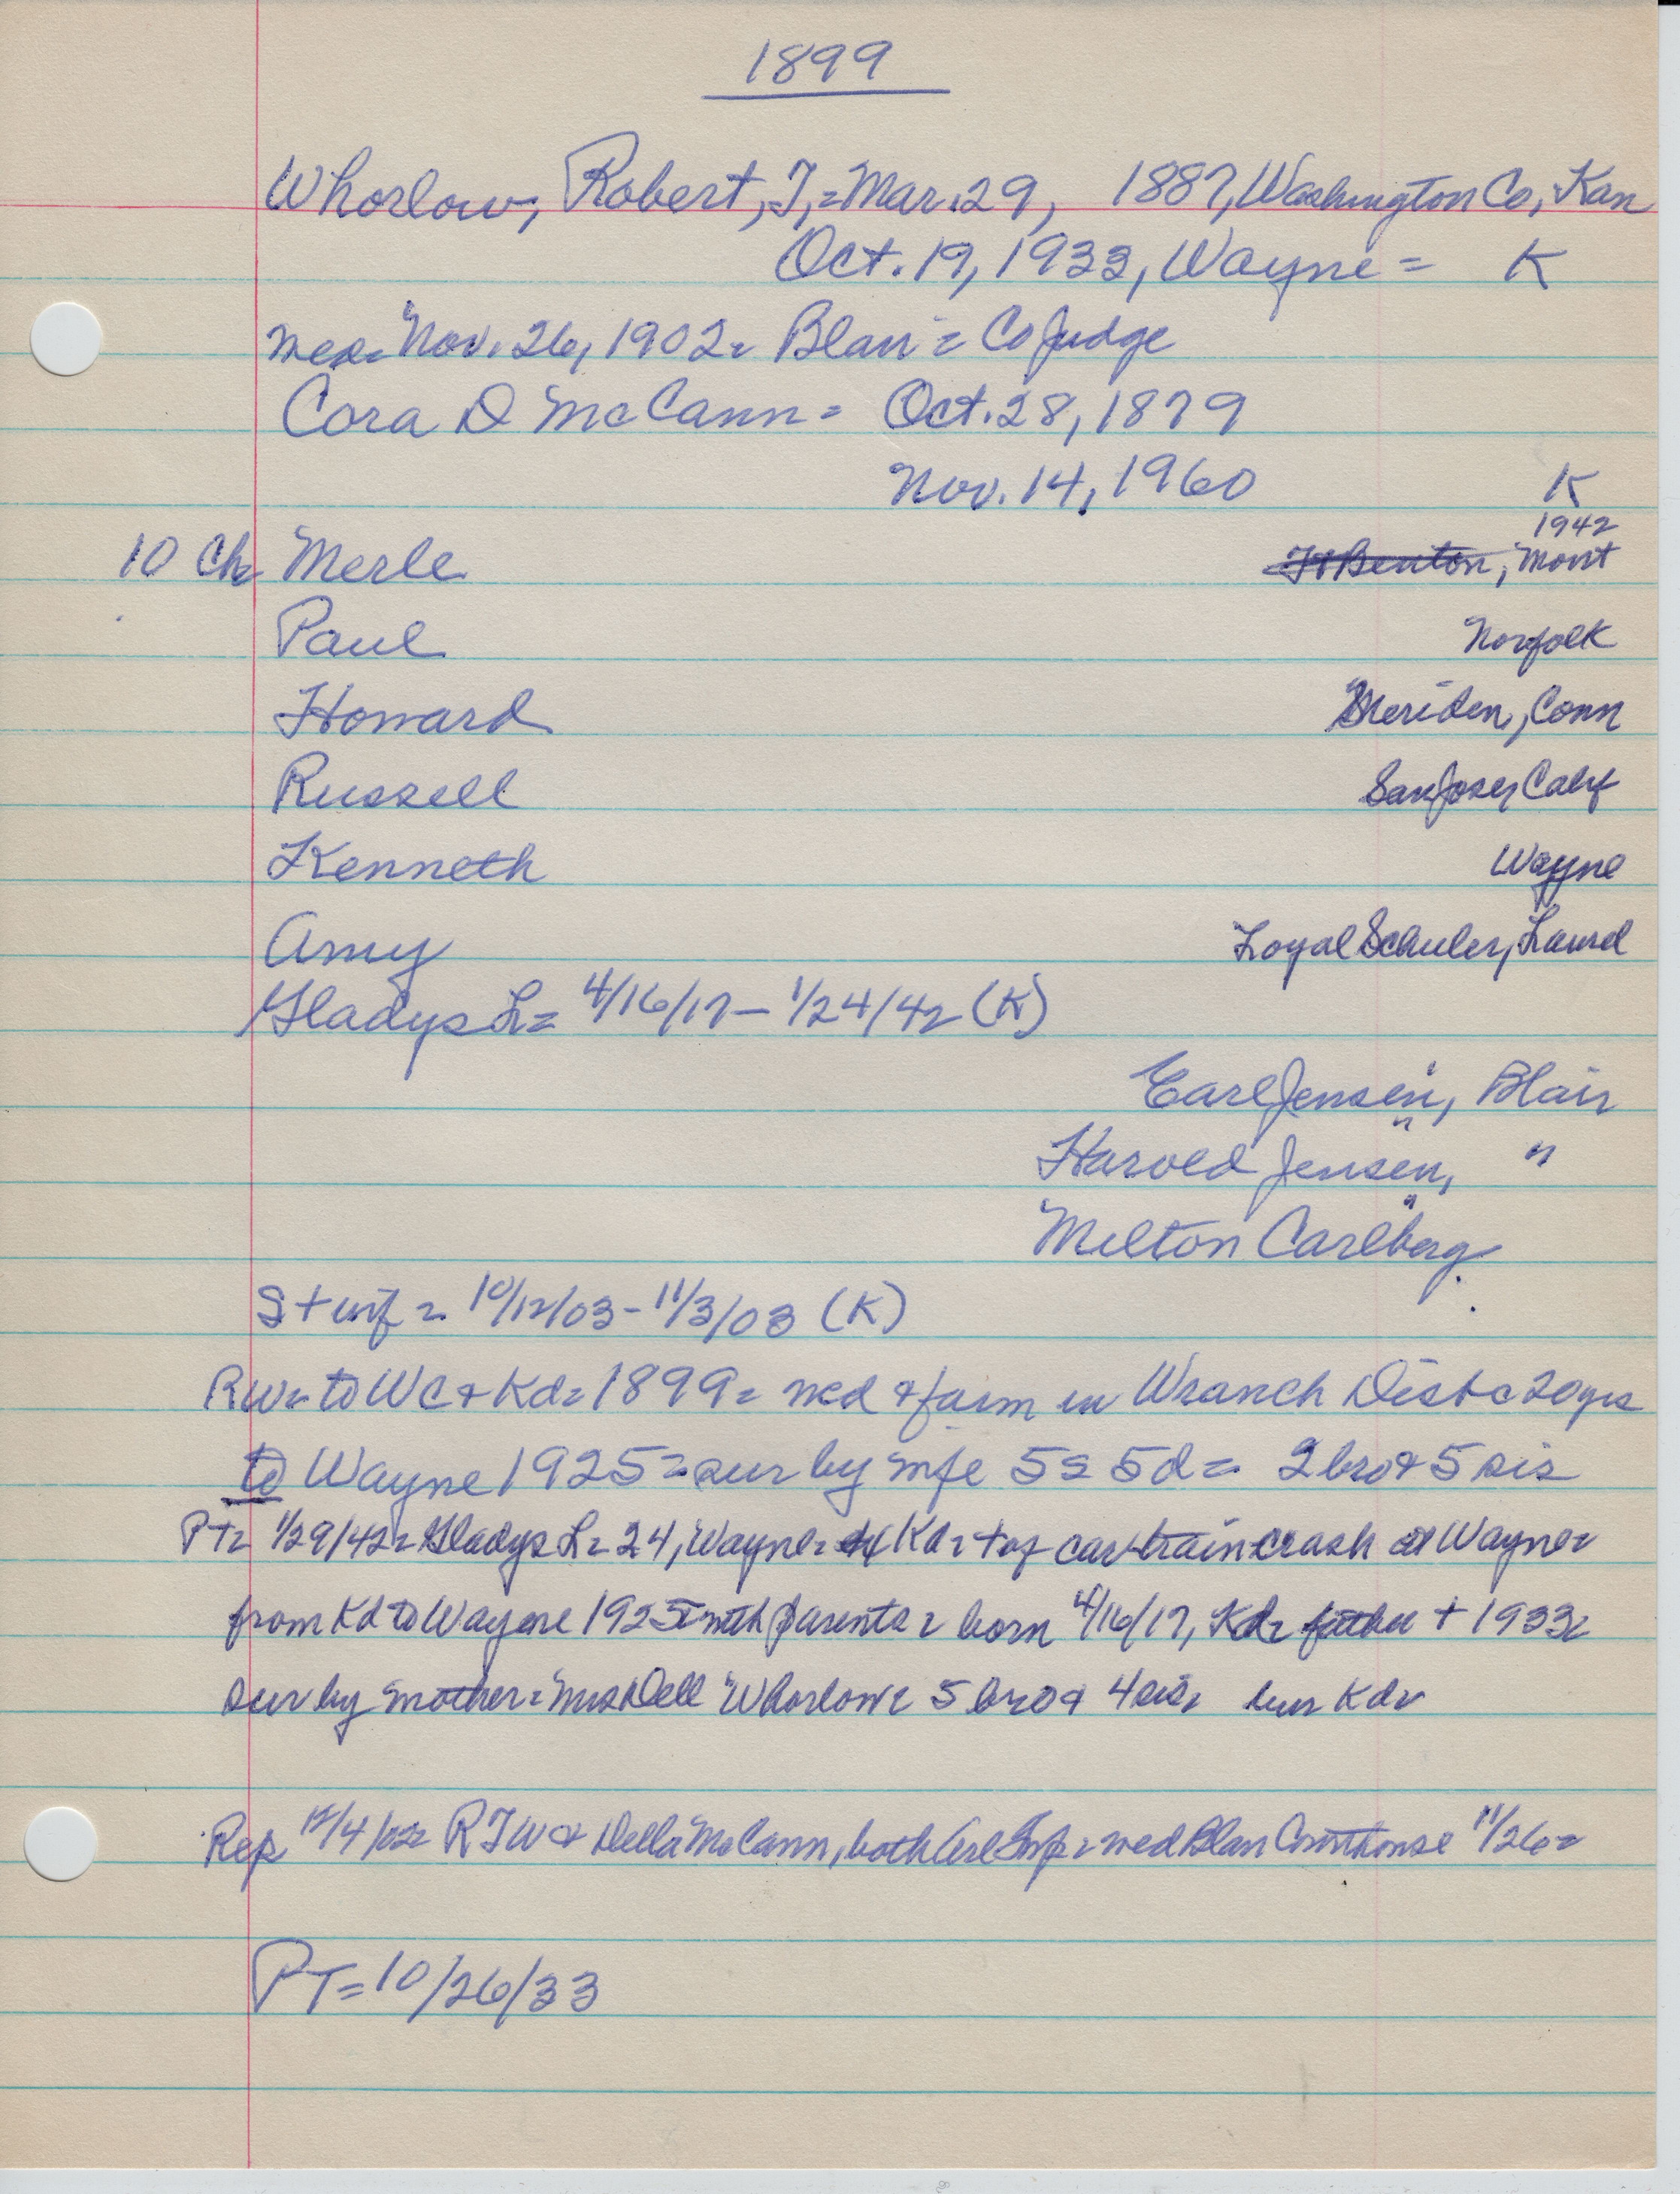 1899
Whorlow, Robert, T,= Mar. 29, 1887, Washington Co, Kan
Oct. 19, 1933, Wayne = K
wed= Nov. 26, 1902= Blair = Co Judge
Cora D McCann = Oct. 28, 1879
Nov. 14, 1960 K
1942
10 Ch Merle Ft Benton, Mont
Paul Norfolk
Howard Meriden, Conn
Russell San Jose, Calif
Kenneth Wayne
Amy Loyal Schuler, Laurel
Gladys L= 4/16/17 – 1/24/42 (K)
Earl Jensen, Blair
Harold Jensen, "
Milton Carlberg "
S + inf = 10/12/03 - 11/3/03 (K)
RW= to WC & Kd= 1899= wed & farm in Dist= 20 yrs
to Wayne 1925= sur by wife 5s 5d= 2 bro & 5 sis
PT= 1/29/42= Gladys L= 24, Wayne= Kd= + of car-train crash at Wayne=
from Kd to Wayne 1925 with parents= born 4/16/17, Kd= father + 1933=
sur by mother= Mrs Dell Whorlow= 5 bro & 4 sis= bur Kd=
Rep 12/4/02= RTW & Della McCann, both Arl = wed Blair Courthouse 11/26=
PT= 10/26/33